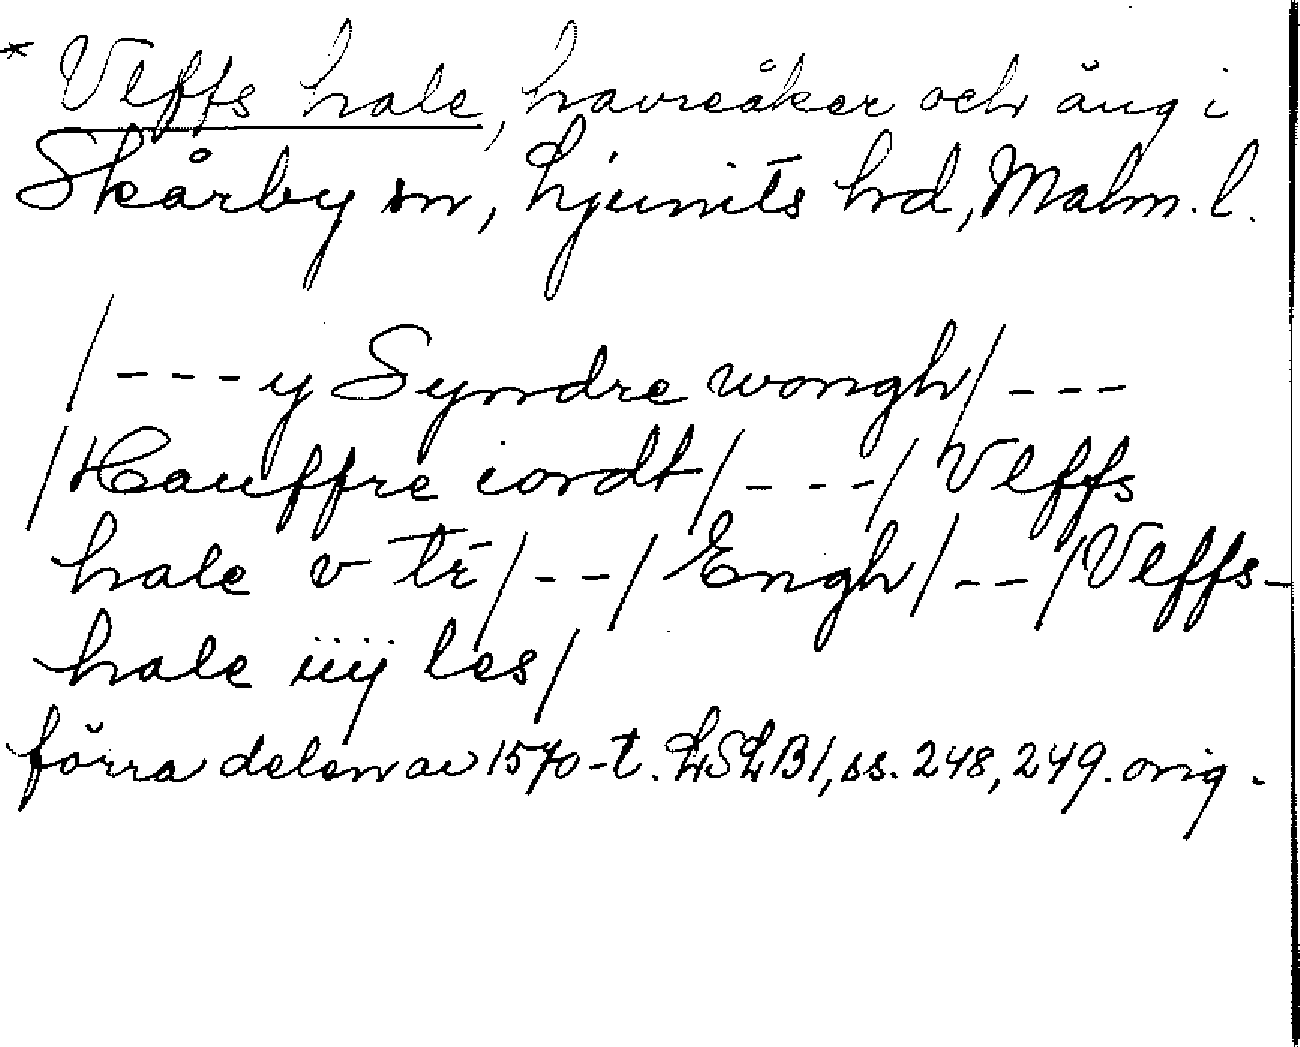 * Vlffs hale, havreåker och äng i
Skårby sn, Ljunits hd, Malm. l.
/---y Syndre wongh/---
/Hauffre iordt/---/ Vlffs
hale v tr̄/--/ Engh/--/Vlffs-
hale iiij les/
förra delen av 1570-t. LSLB1, ss. 248, 249. orig.